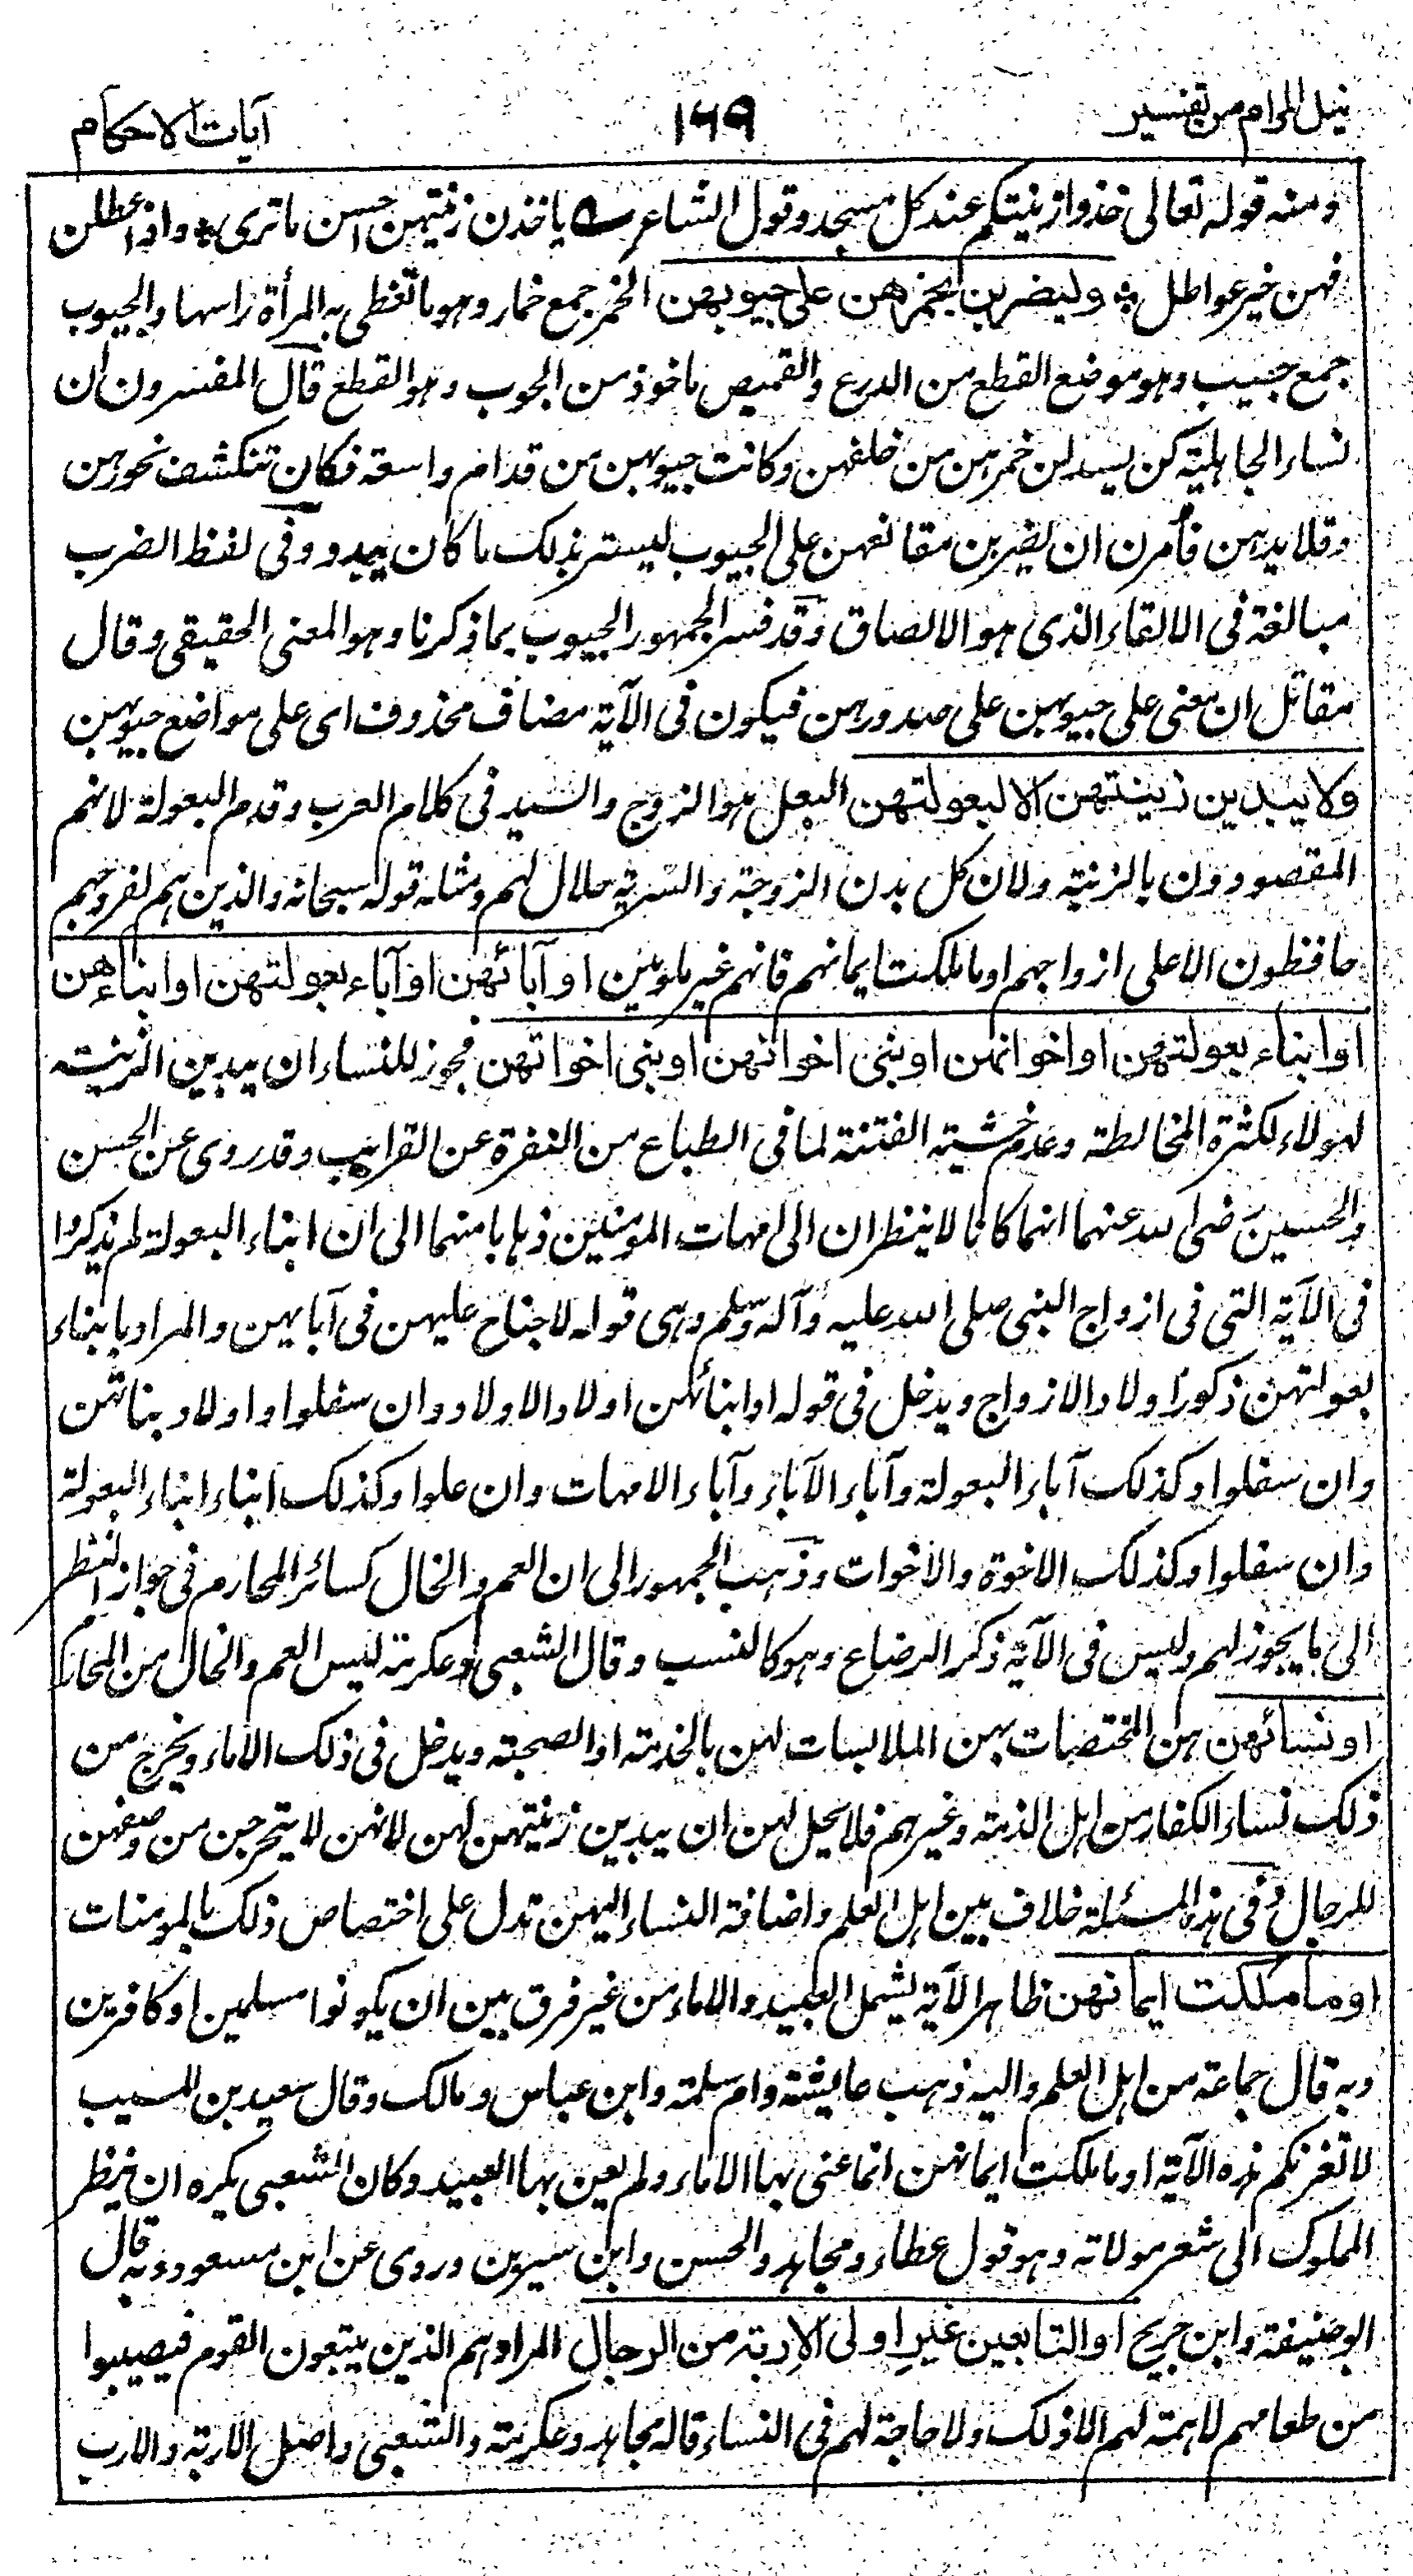 نيل المرام من تفسير
١٦٩
آيات الاحكام
ومنه قوله تعالى خذوا زينتكم عند كل مسجد وقول الشاعر ياخذن زينتهن احسن ما ترى * واذا عطلن
فهن خير عواطل * وليضربن بخمرهن على جيوبهن الخمر جمع خمار وهو ما تغطى به المرأة راسها والجيوب
جمع جيب وهو موضع القطع من الدرع والقميص ماخوذ من الجوب وهو القطع قال المفسرون ان
نساء الجاهلية كن يسدلن خمرهن من خلفهن وكانت جيوبهن من قدام واسعة فكان تنكشف نحورهن
وقلايدهن فأمرن ان يضربن مقانعهن على الجيوب ليستر بذلك ما كان يبدو وفى لفظ الضرب
مبالغة فى الالقاء الذى هو الالصاق وقد فسر الجمهور الجيوب بما ذكرنا وهو المعنى الحقيقى وقال
مقاتل ان معنى على جيوبهن على صدورهن فيكون فى الآية مضاف محذوف اى على مواضع جيوبهن
ولا يبدين زينتهن الا لبعولتهن البعل هو الزوج والسيد فى كلام العرب وقدم البعولة لانهم
المقصودون بالزينة ولان كل بدن الزوجة والسرية حلال لهم ومثله قوله سبحانه والذين هم لفروجهم
حافظون الا على ازواجهم او ما ملكت ايمانهم فانهم غير ملومين او آبائهن او آباء بعولتهن او ابناءهن
او ابناء بعولتهن او اخوانهن او بنى اخوانهن او بنى اخواتهن فجوز للنساء ان يبدين الزينة
لهولاء لكثرة المخالطة وعدم خشية الفتنة لما فى الطباع من النفرة عن القرايب وقد روى عن الحسن
والحسين رضى الله عنهما انهما كانا لا ينظران الى امهات المومنين ذهابا منهما الى ان ابناء البعولة لم يذكروا
فى الآية التى فى ازواج النبى صلى الله عليه وآله وسلم وهى قوله لا جناح عليهن فى آبايهن والمراد بابناء
بعولتهن ذكور اولاد الازواج ويدخل فى قوله او ابنائهن اولاد الاولاد وان سفلوا واولاد بناتهن
وان سفلوا وكذلك آباء البعولة وآباء الآباء وآباء الامهات وان علوا وكذلك ابناء ابناء البعولة
وان سفلوا وكذلك الاخوة والاخوات وذهب الجمهور الى ان العم والخال كسائر المحارم فى جواز النظر
الى ما يجوز لهم وليس فى الآية ذكر الرضاع وهو كالنسب وقال الشعبى وعكرمة ليس العم والخال من المحارم
او نسائهن هن المختصات بهن الملابسات لهن بالخدمة او الصحبة ويدخل فى ذلك الاماء ويخرج من
ذلك نساء الكفار من اهل الذمة وغيرهم فلا يحل لهن ان يبدين زينتهن لهن لانهن لا يتحرجن من وصفهن
للرجال وفى هذه المسئلة خلاف بين اهل العلم واضافة النساء اليهن تدل على اختصاص ذلك بالمومنات
او ما ملكت ايمانهن ظاهر الآية يشمل العبيد والاماء من غير فرق بين ان يكونوا مسلمين او كافرين
وبه قال جماعة من اهل العلم واليه ذهب عايشة وام سلمة وابن عباس ومالك وقال سعيد بن المسيب
لا تغرنكم هذه الآية او ما ملكت ايمانهن انما عنى بها الاماء ولم يعن بها العبيد وكان الشعبى يكره ان ينظر
المملوك الى شعر مولاته وهو قول عطاء ومجاهد والحسن وابن سيرين وروى عن ابن مسعود وبه قال
ابو حنيفة وابن جريج او التابعين غير اولى الاربة من الرجال المراد هم الذين يتبعون القوم فيصيبوا
من طعامهم لا همة لهم الا ذلك ولا حاجة لهم فى النساء قاله مجاهد وعكرمة والشعبى واصل الاربة والارب